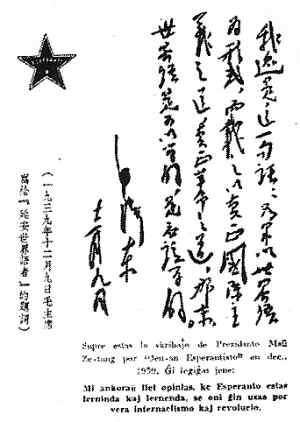 我還是這一句話：如果以世界語
為形式，而載之以真正國際主
義之道，真正革命之道，那末，
世界語是可以學的，是應該學的。
毛澤東
十二月九日
（一九三九年十二月九日毛主席
寫給『延安世界語者』的題詞）
Supre estas la skribaĵo de Prezidanto Maŭ
Ze-tung por "Jen-an Esperantisto" en dec.,
1939. Ĝi legiĝas jene:
Mi ankoraŭ tiel opinias, ke Esperanto estas
lerninda kaj lernenda, se oni ĝin uzas por
vera internaciismo kaj revolucio.